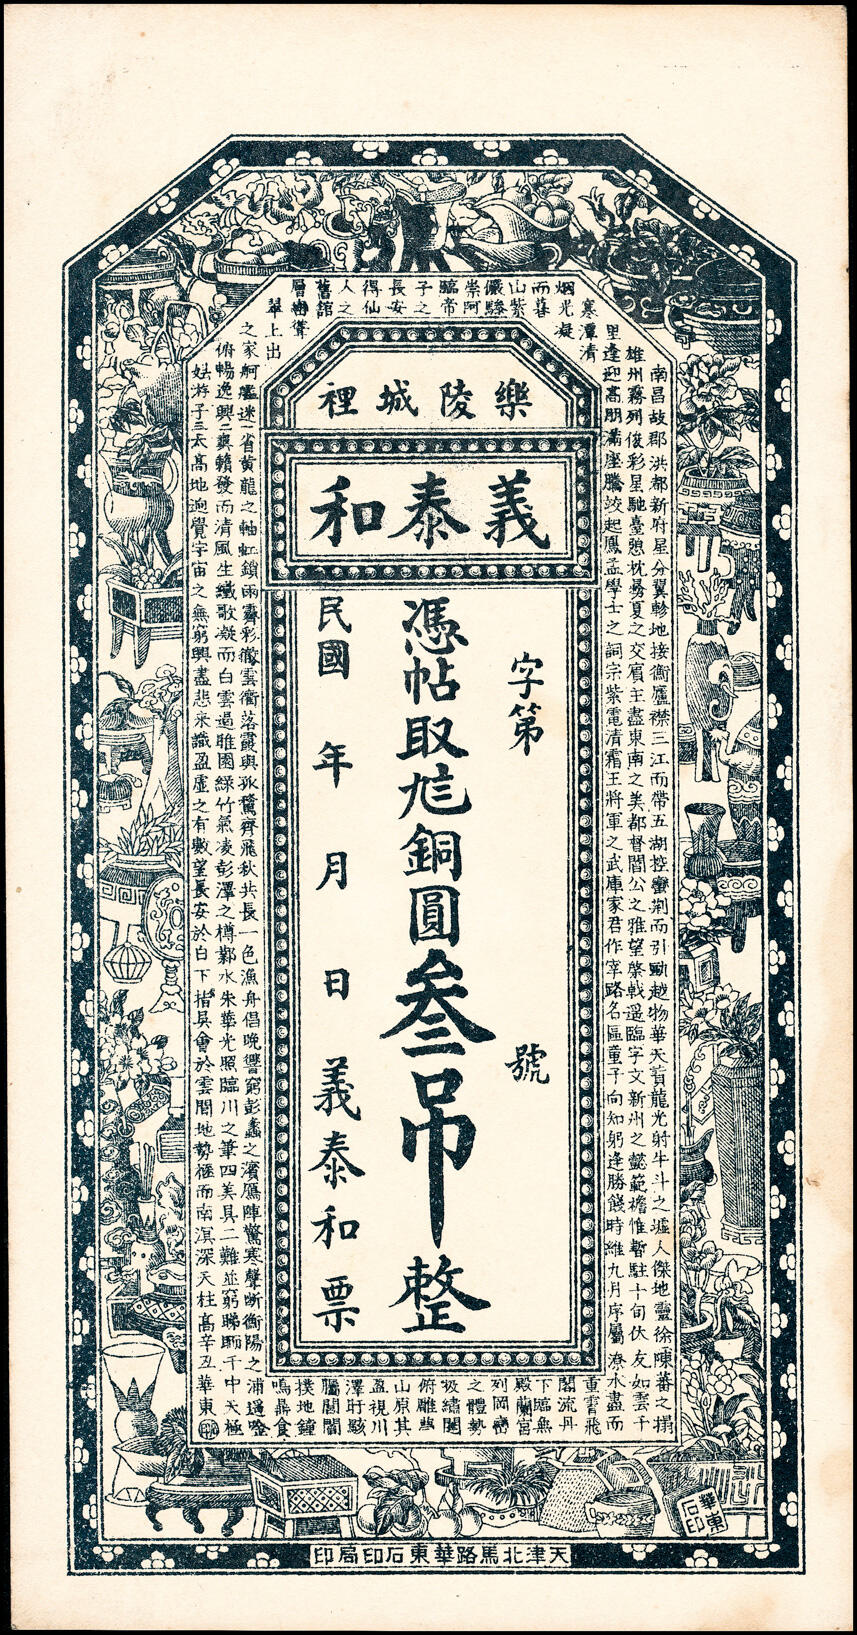 樂陵城裡
義泰和
字第 號
憑帖取 銅圓叁吊整
民國 年 月 日 義泰和票
南昌故郡洪都新府星分翼軫地接衡廬襟三江而帶五湖控蠻荊而引甌越物華天寶龍光射牛斗之墟人傑地靈徐陳蕃之榻
雄州霧列俊彩星馳臺隍枕夷夏之交賓主盡東南之美都督閻公之雅望棨戟遥臨宇文新州之懿範襜惟暫駐十旬休友如雲千
里逢迎高朋滿座騰蛟起鳳孟學士之詞宗紫電清霜王將軍之武庫家君作宰路名區童子何知躬逢勝餞時維九月序屬潦水盡而
寒潭清
烟光凝
而暮
山紫
儼驂
崇阿
臨帝
子之
長安
得仙
人之
舊舘
層巒聳
翠上出
重霄飛
閣流丹
下臨無
殿蘭宮
列岡巒
之體勢
披繡闥
俯雕甍
山原其
盈視川
澤盱駭
騰閭閻
撲地鐘
鳴鼎食
之家舸艦迷 省黄龍之軸虹銷雨霽彩徹雲衢落霞與孤鶩齊飛秋共長一色漁舟唱晚響窮彭蠡之濱雁陣驚寒聲断衡陽之浦遥吟
俯暢逸興 爽籟發而清風生纖歌凝而白雲遏睢園綠竹氣凌彭澤之樽鄴水朱華光照臨川之筆四美具二難並窮睇眄于中天極
娛遊于 高地迥覺宇宙之無窮興盡悲來識盈虛之有數望長安於白下指吳會於雲間地勢極而南溟深天柱高辛丑華東印
華東石印
天津北馬路華東石印局印